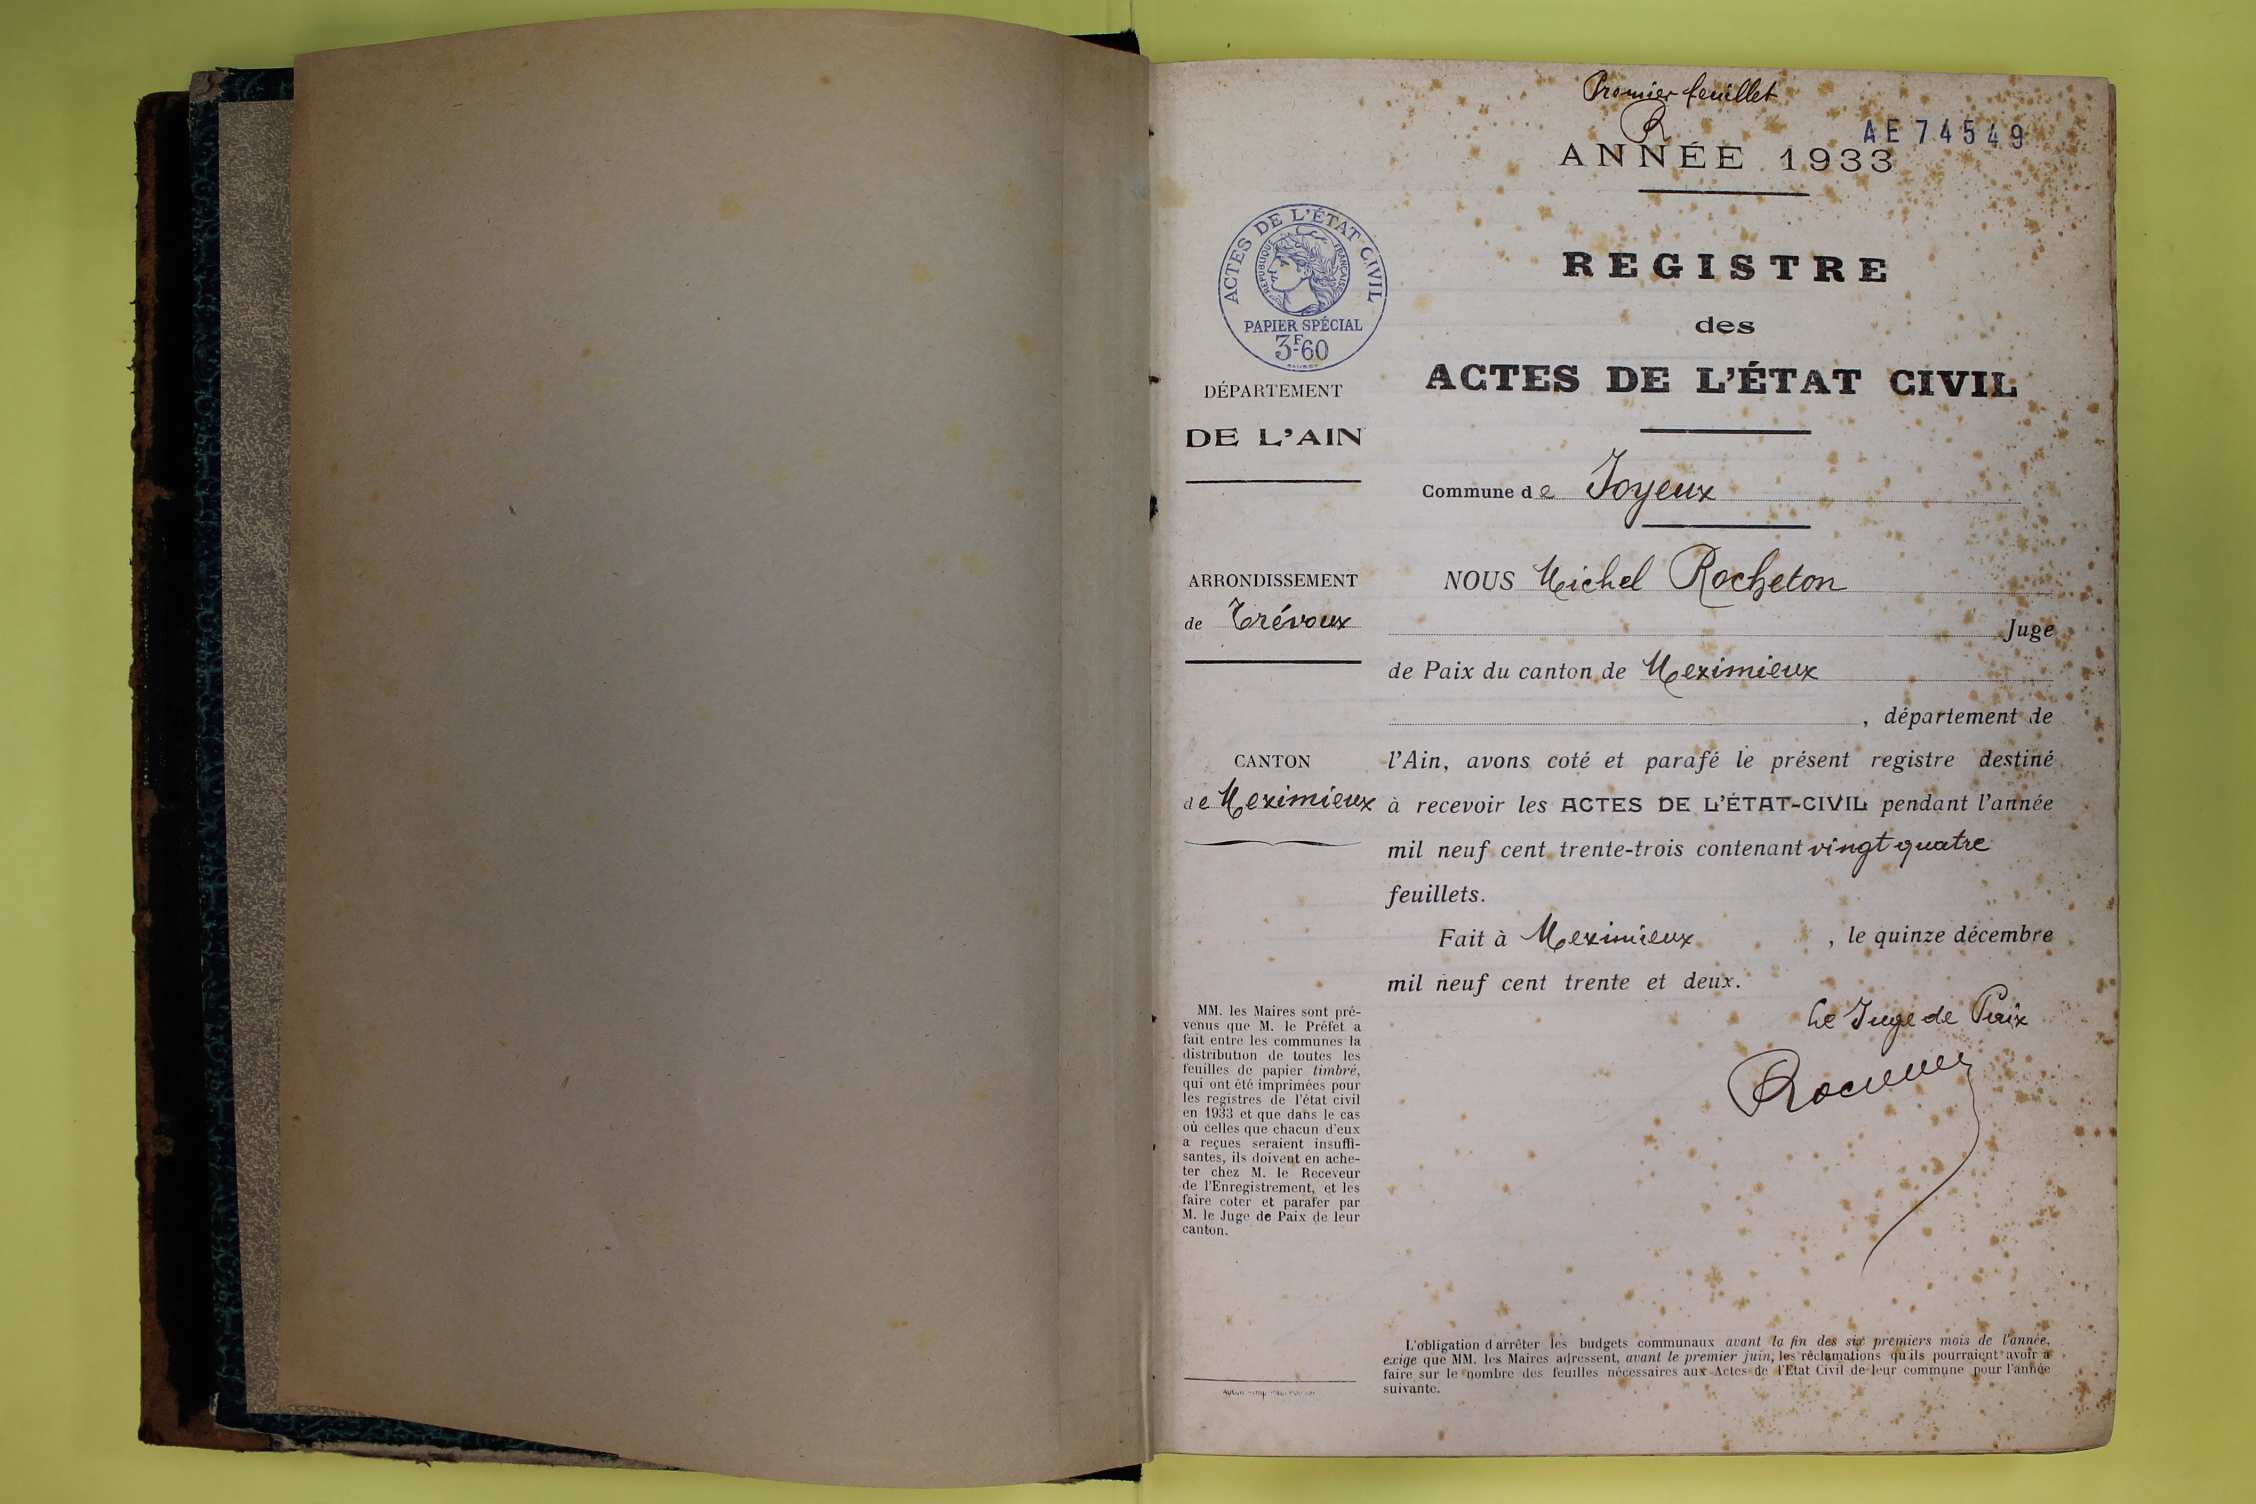 Premier feuillet
R
AE 74549
ANNÉE 1933
ACTES DE L'ÉTAT CIVIL
RÉPUBLIQUE FRANÇAISE
PAPIER SPÉCIAL
3F-60
DÉPARTEMENT
DE L'AIN
ARRONDISSEMENT
de Trévoux
CANTON
de Meximieux
MM. les Maires sont pré-
venus que M. le Préfet a
fait entre les communes la
distribution de toutes les
feuilles de papier timbré,
qui ont été imprimées pour
les registres de l'état civil
en 1933 et que dans le cas
où celles que chacun d'eux
a reçues seraient insuffi-
santes, ils doivent en ache-
ter chez M. le Receveur
de l'Enregistrement, et les
faire coter et parafer par
M. le Juge de Paix de leur
canton.
REGISTRE
des
ACTES DE L'ÉTAT CIVIL
Commune de Joyeux
NOUS Michel Rocheton
Juge
de Paix du canton de Meximieux
, département de
l'Ain, avons coté et parafé le présent registre destiné
à recevoir les ACTES DE L'ÉTAT-CIVIL pendant l'année
mil neuf cent trente-trois contenant vingt quatre
feuillets.
Fait à Meximieux , le quinze décembre
mil neuf cent trente et deux.
Le Juge de Paix
L'obligation d'arrêter les budgets communaux avant la fin des six premiers mois de l'année,
exige que MM. les Maires adressent, avant le premier juin, les réclamations qu'ils pourraient avoir à
faire sur le nombre des feuilles nécessaires aux Actes de l'Etat Civil de leur commune pour l'année
suivante.